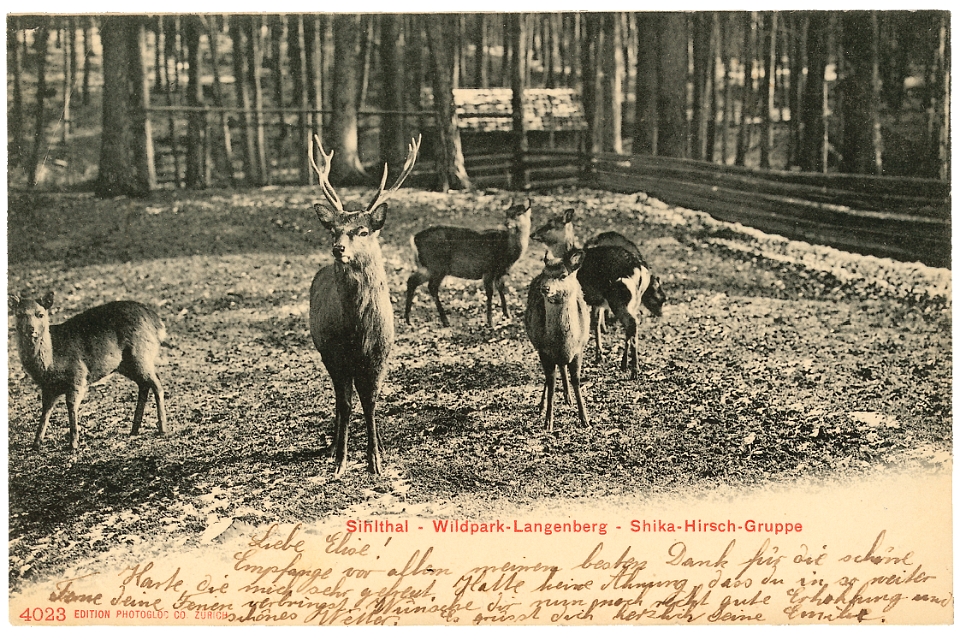 Sihlthal - Wildpark-Langenberg - Shika-Hirsch-Gruppe
Liebe Elise!
Empfange vor allem meinen besten Dank für die schöne
Karte die mich sehr gefreut. Hatte keine Ahnung, dass du in so weiter
Ferne deine Ferien verbringst. Wünsche dir nun noch recht gute Erholung und
schönes Wetter. Es grüsst dich herzlich deine Emilie.
4023 EDITION PHOTOGLOB CO. ZÜRICH